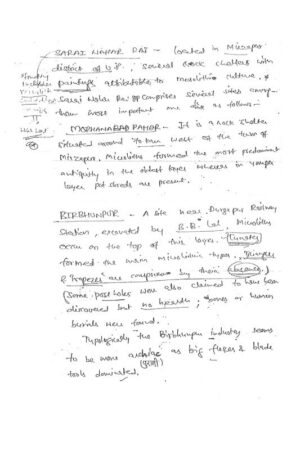 SARAI NAHAR RAI - Located in Mirzapur
district of U.P., several rock shelters with
paintings attributable to mesolithic culture, &
Sarai Nahar Rai comprises several sites among
them most important one is as follows -
MORHANA PAHAR - It is a rock shelter
situated around 70 km west of the town of
Mirzapur, Microliths formed the most predominant
antiquity in the oldest layer whereas in younger
layer pot sherds are present.
BIRBHUNPUR - A site near Durgapur Railway
Station, excavated by B.B. Lal. Microliths
occur on the top of this layer. Lunates
formed the main microlithic types.
& Trapezes are conspicuous by their absence.
Some post holes were also claimed to have been
discovered but no hearth, bones or human
burials were found.
Typologically the Birbhunpur industry seems
to be more archaic as big flakes & blade
tools dominated.